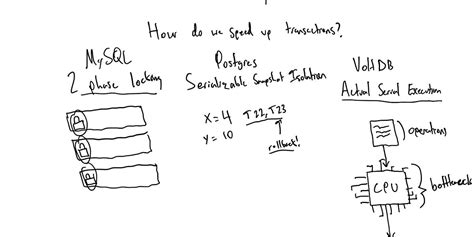 How do we speed up transactions?
MySQL
2 phase locking
Postgres
Serializable Snapshot Isolation
X=4 T22, T23
Y=10
rollback!
VoltDB
Actual Serial Execution
operations
CPU
bottleneck